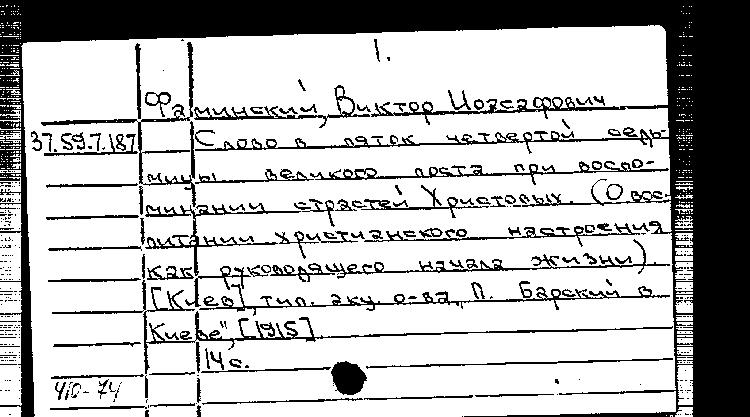 1.
Фаминский, Виктор Иоасафович
37.59.7.187 Слово в пяток четвертой седь-
мицы великого поста при воспо-
минании страстей Христовых. (О вос-
питании христианского настроения
как руководящего начала жизни).
[Киев], тип. акц. о-ва „П. Барский в
Киеве", [1915]
14 с.
410-74